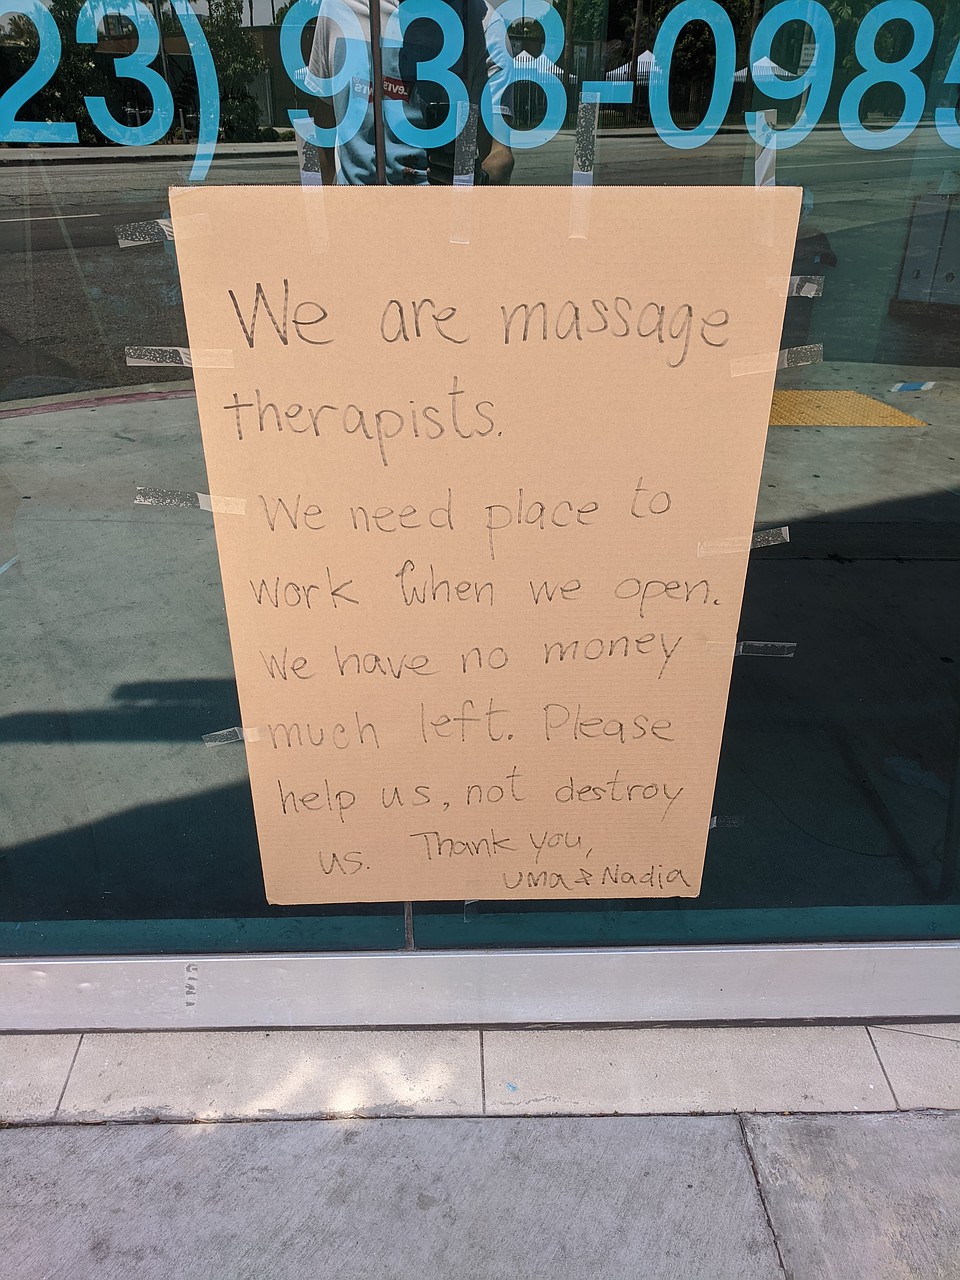 23) 938-098
LEVI'S
We are massage
therapists.
We need place to
work when we open.
We have no money
much left. Please
help us, not destroy
us. Thank you,
Uma & Nadia